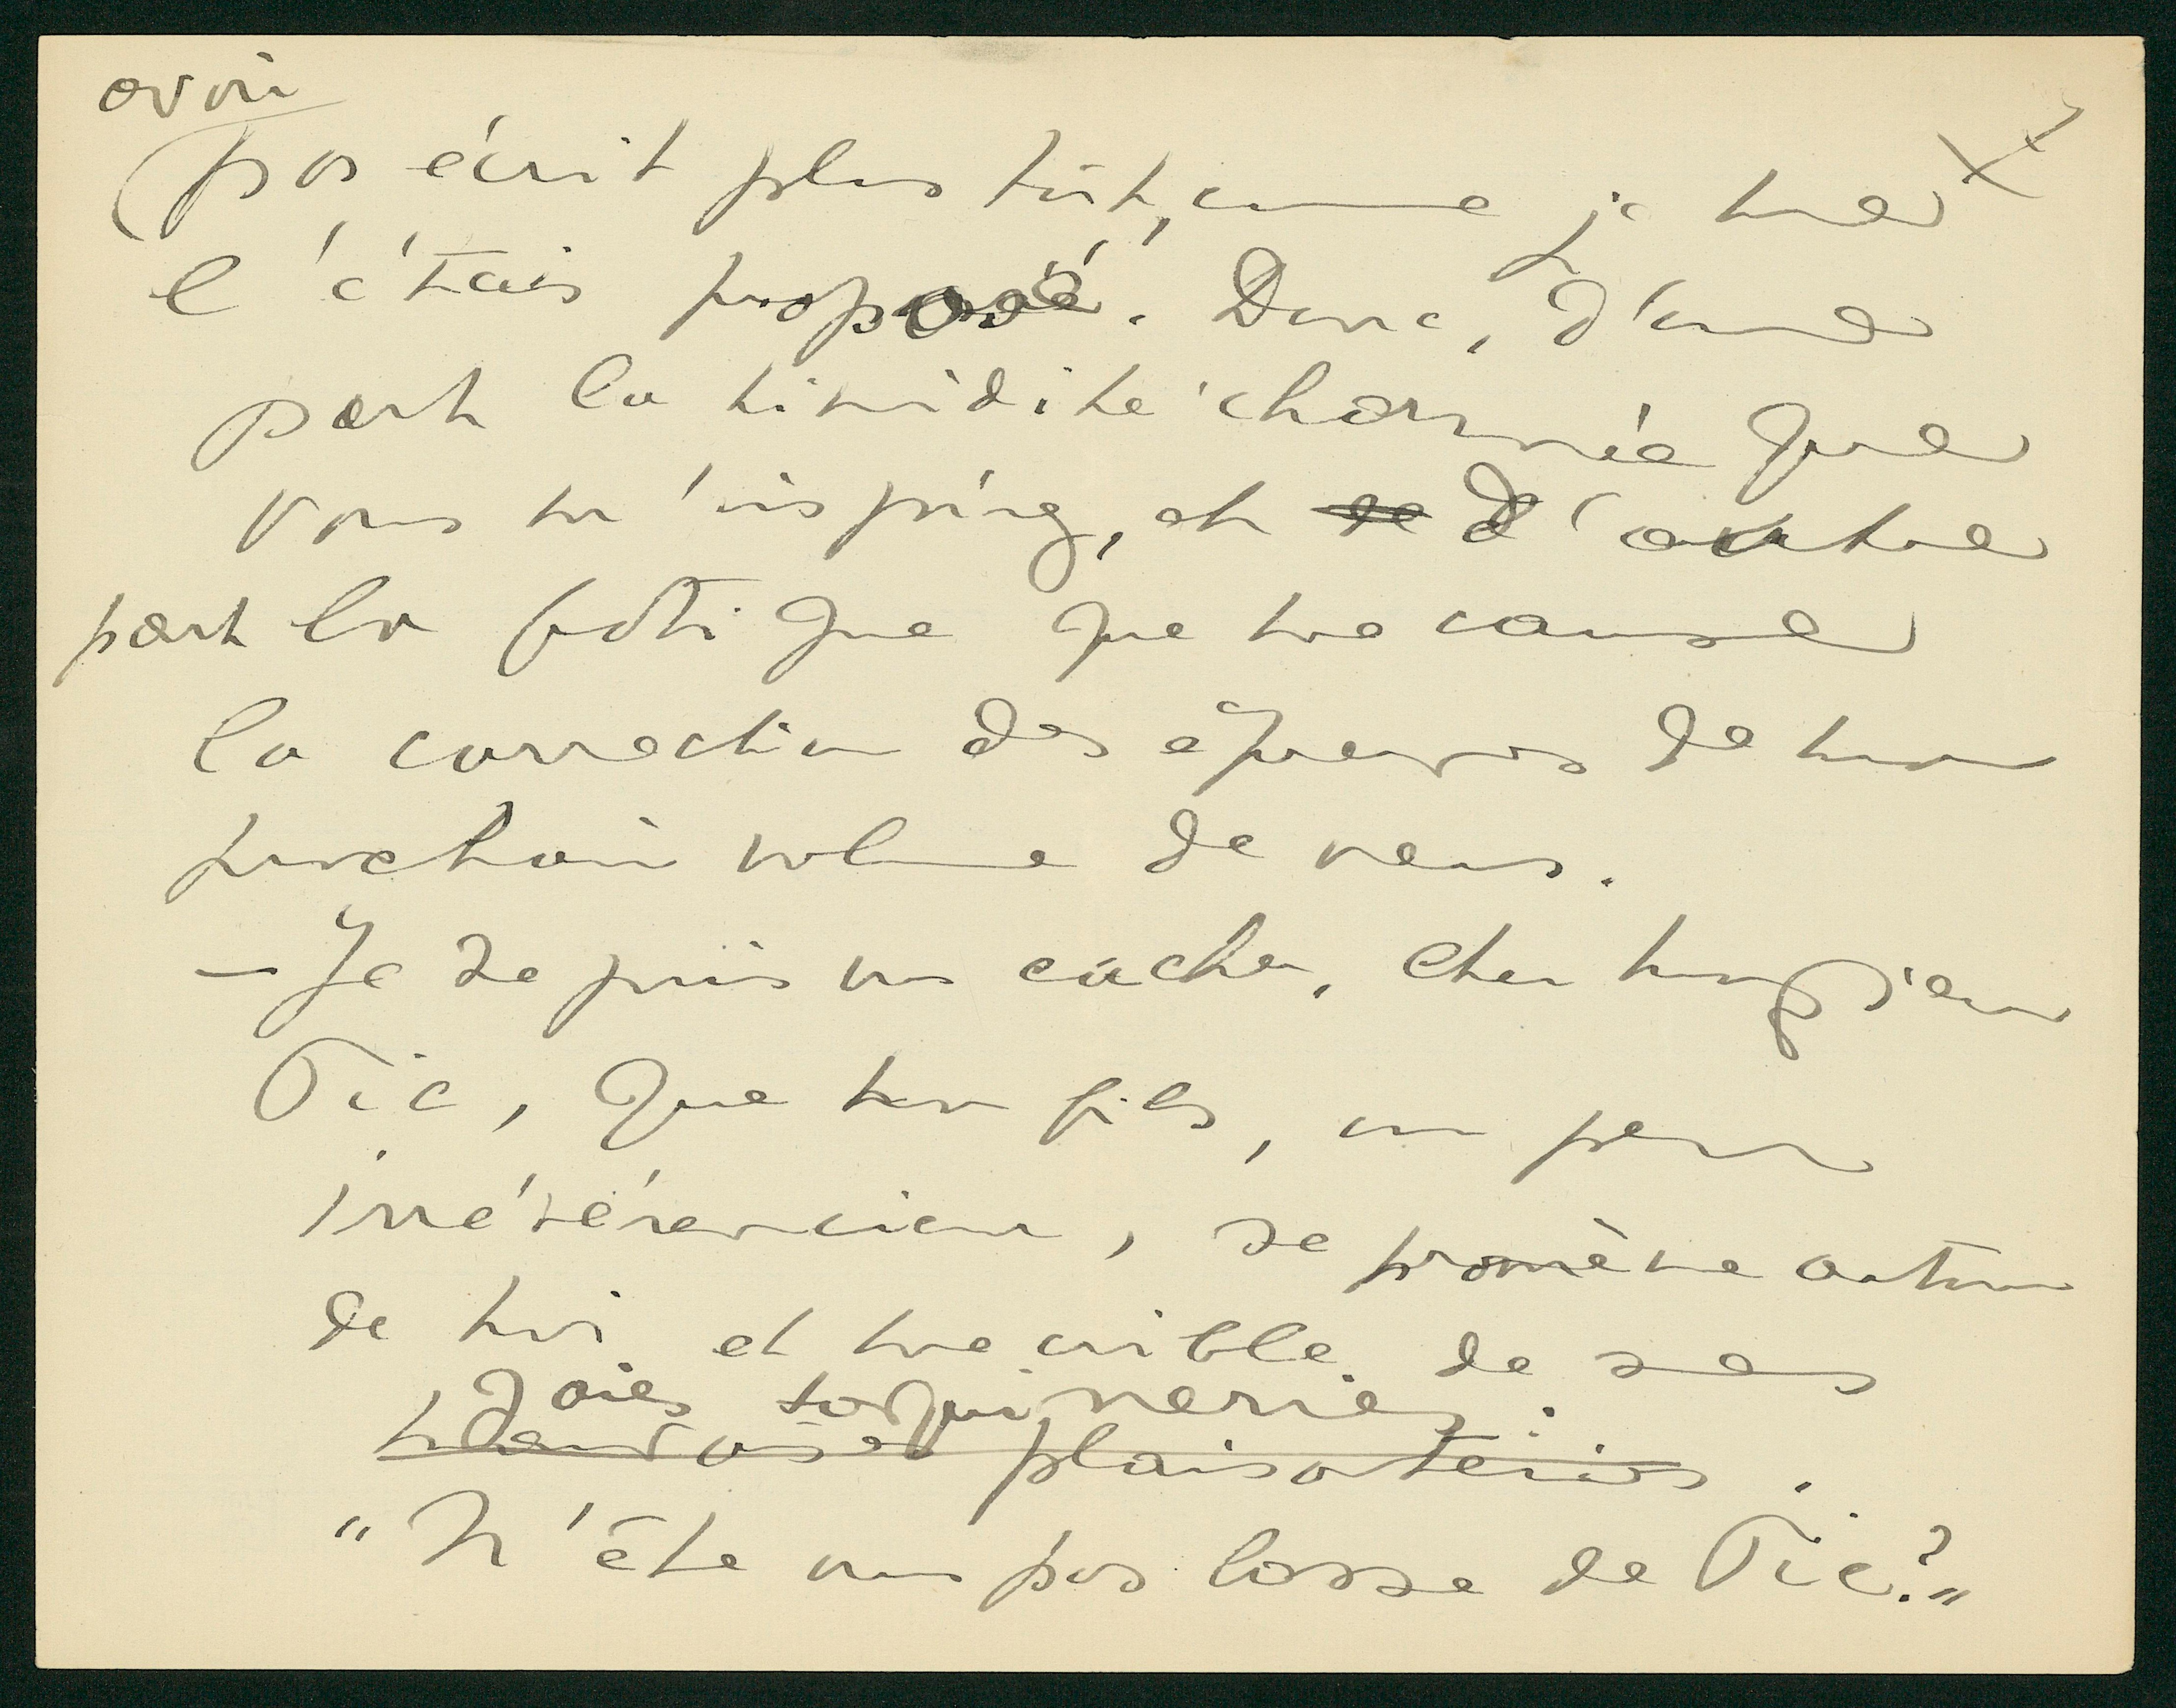 avoir
pas écrit plus tôt, comme je me
l'étais proposé. Donc, d'une
part la timidité charmée que
vous m'inspirez, et de d'autre
part la fatigue que me cause
la correction des épreuves de mon
prochain volume de vers.
– Je ne puis vous cacher, cher monsieur
Pic, que mon fils, un peu
irrévérencieux, se promène autour
de moi et me crible de ses
gaies taquineries :
plaisanteries.
"N'êtes vous pas lasse de Pic?"